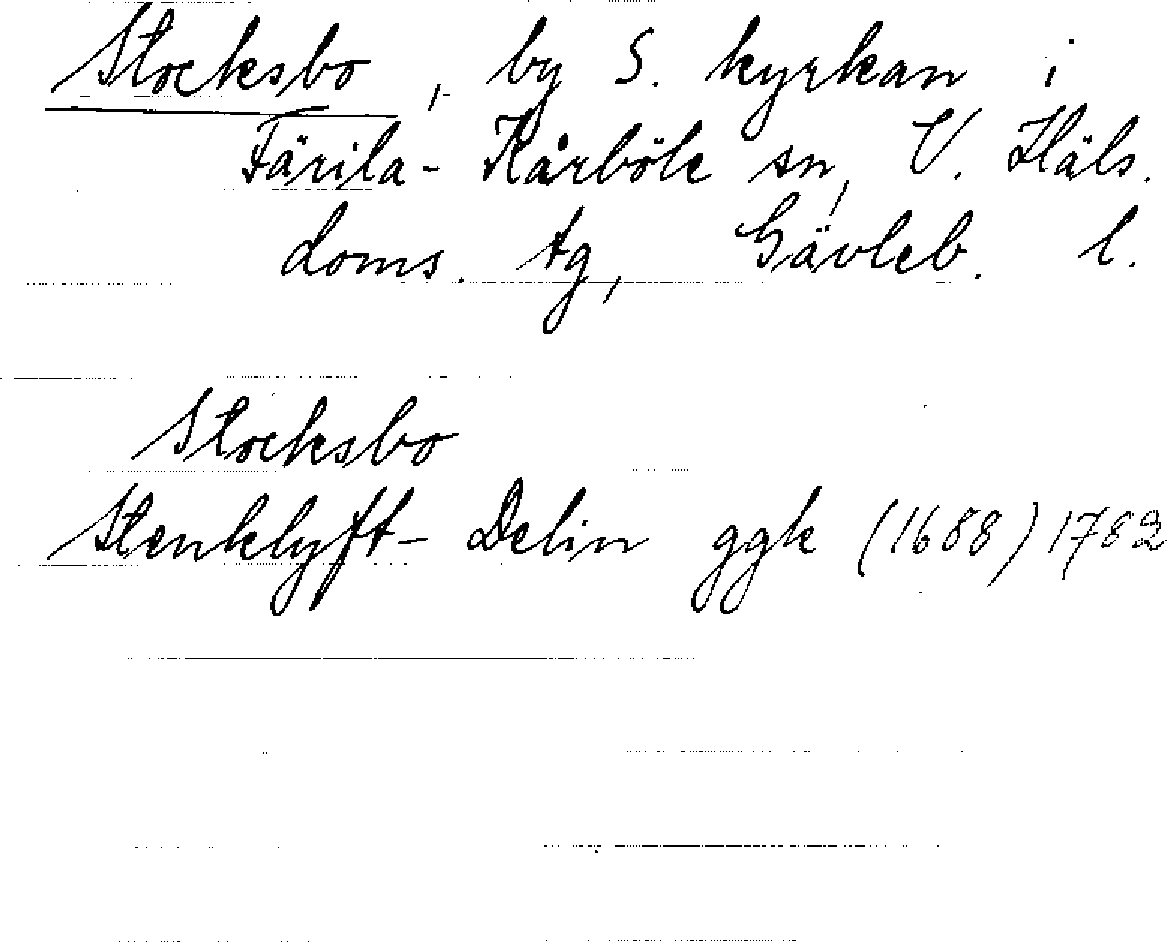 Stocksbo, by S. kyrkan i
Färila-Kårböle sn, V. Häls.
doms. tg, Gävleb. l.
Stocksbo
Stenklyft- Delin ggk (1688) 1782